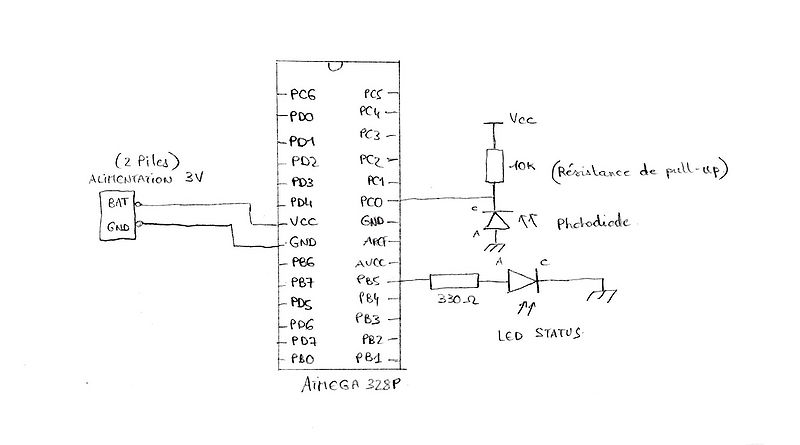 (2 Piles)
ALIMENTATION 3V
BAT
GND
PC6
PD0
PD1
PD2
PD3
PD4
VCC
GND
PB6
PB7
PD5
PD6
PD7
PB0
PC5
PC4
PC3
PC2
PC1
PC0
GND
AREF
AVCC
PB5
PB4
PB3
PB2
PB1
ATMEGA 328P
Vcc
10K (Résistance de pull-up)
C
A
Photodiode
A C
330Ω
LED STATUS